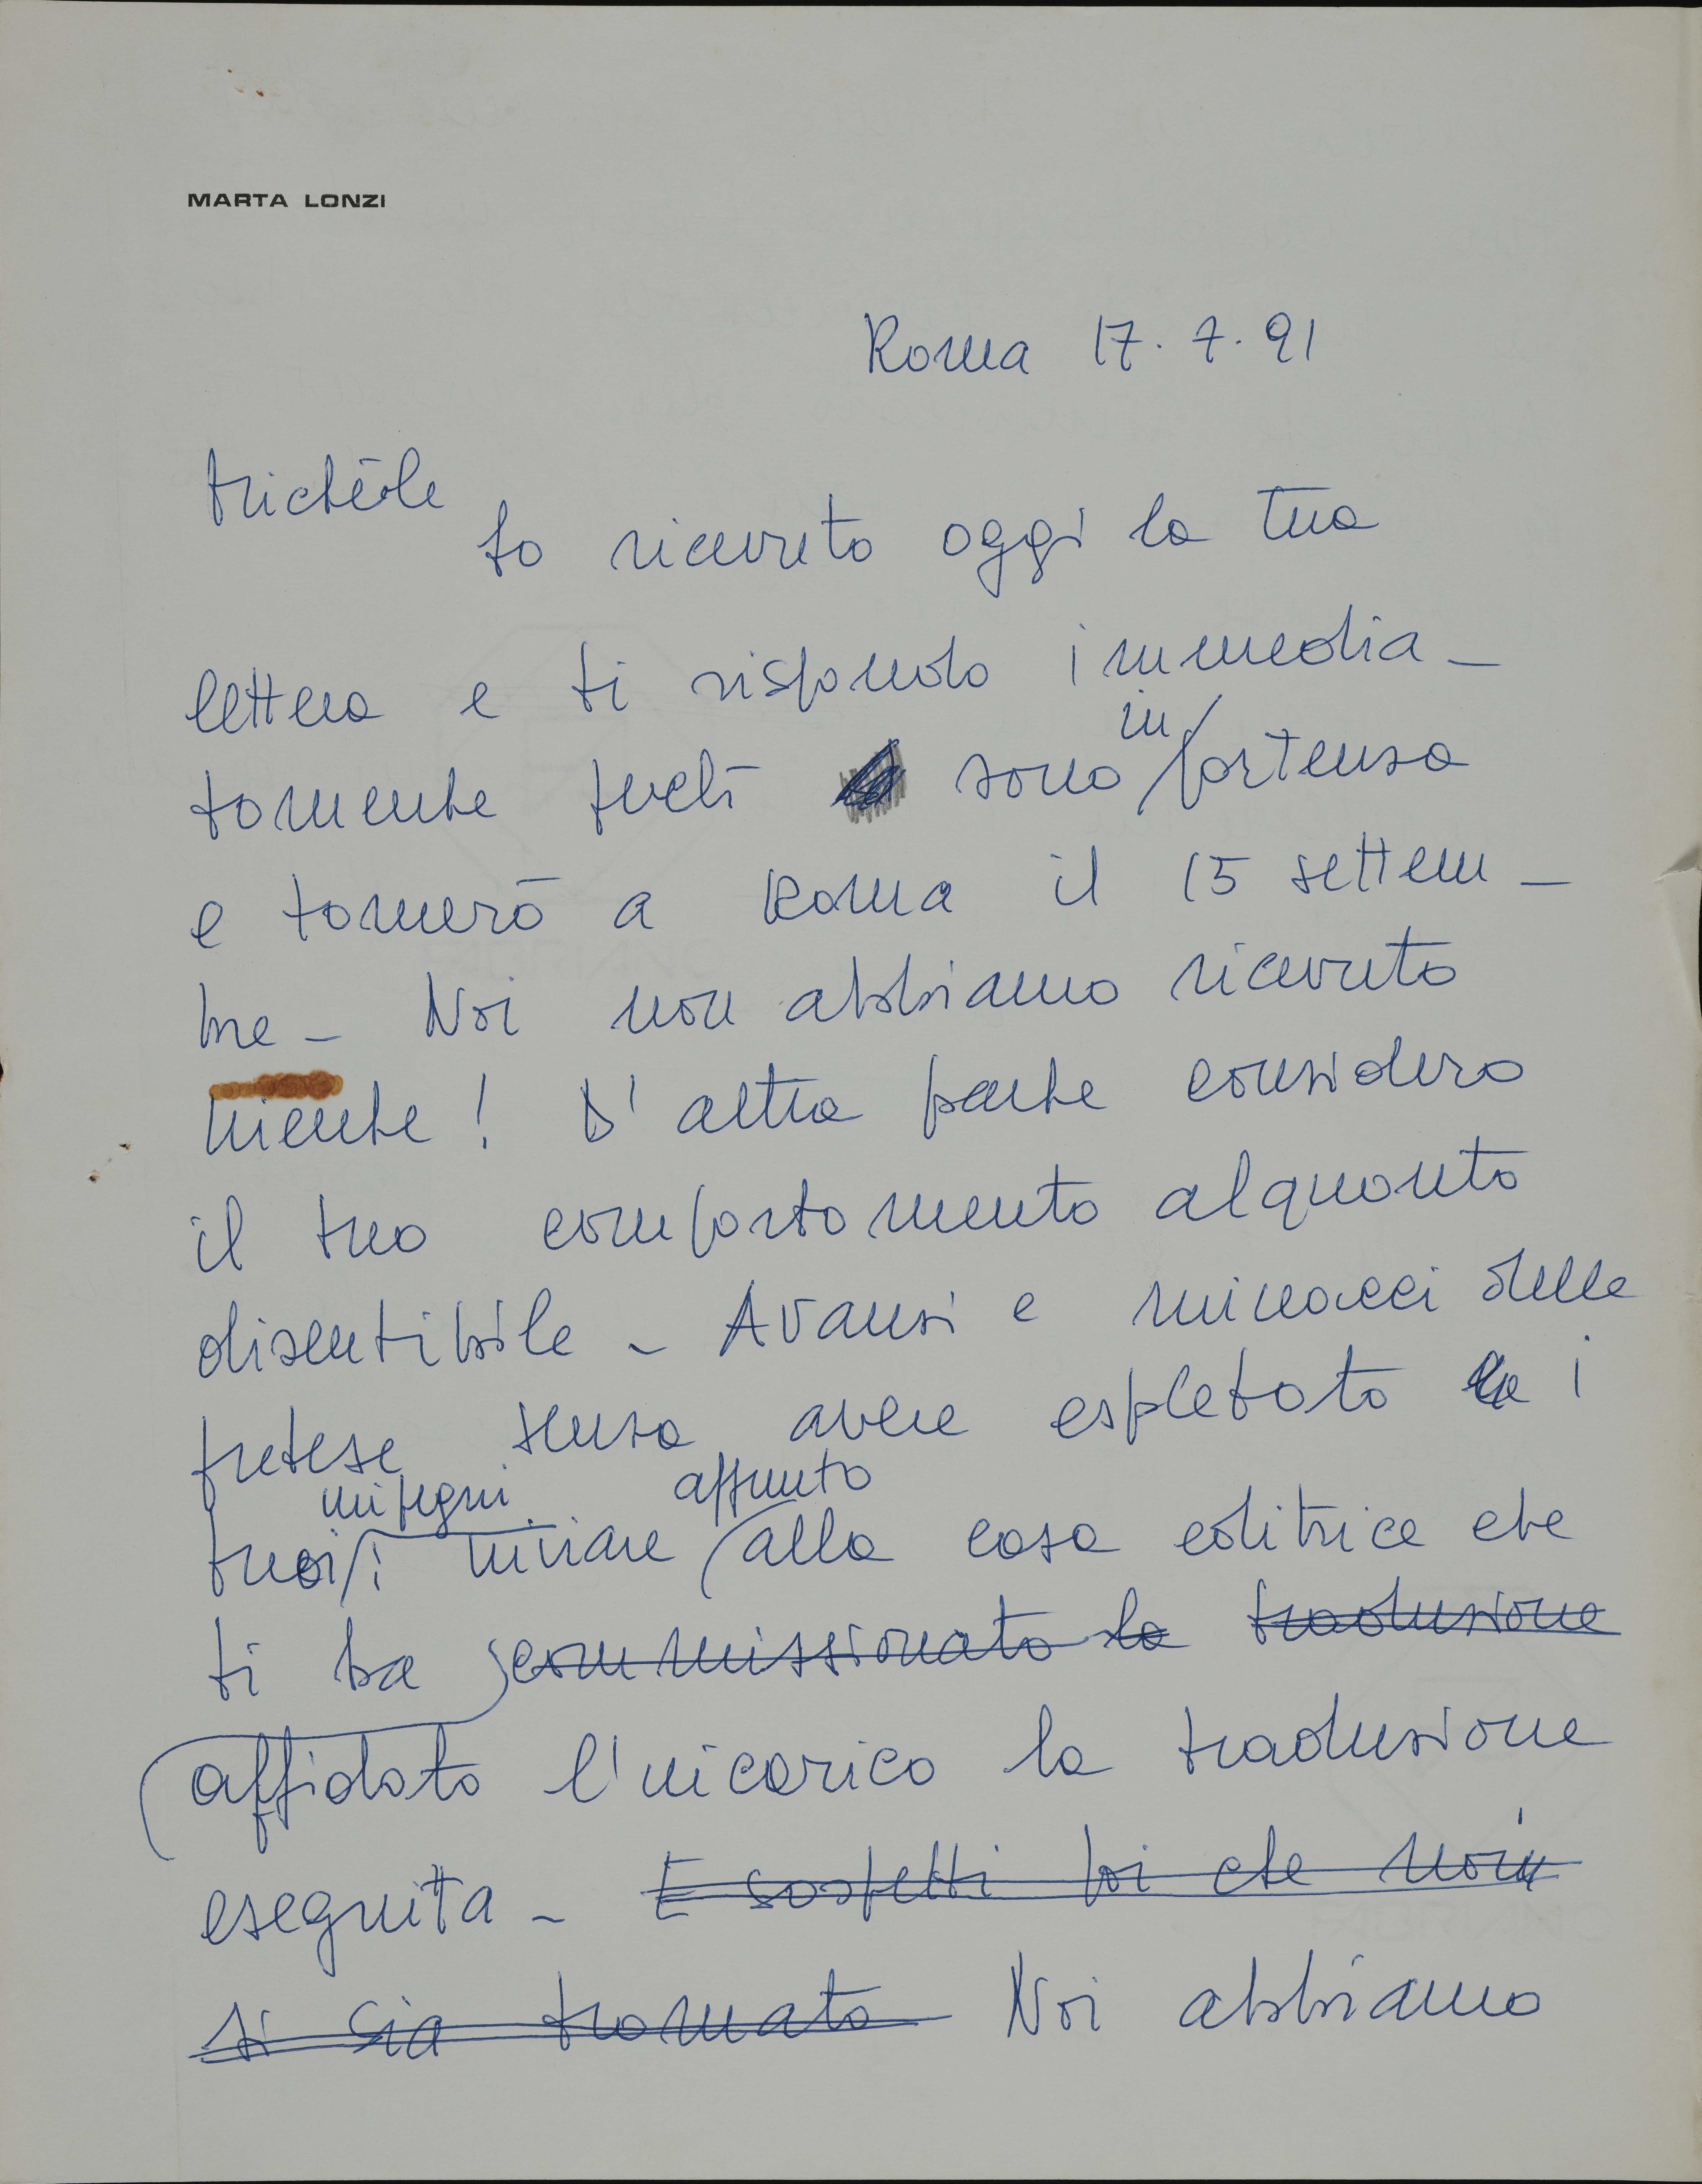 MARTA LONZI
Roma 17.7.91
Michèle
Ho ricevuto oggi la tua
lettera e ti rispondo immedia-
tamente perché sono in partenza
e tornerò a Roma il 15 settem-
bre - Noi non abbiamo ricevuto
niente! D'altra parte considero
il tuo comportamento alquanto
discutibile - Avanzi e minacci delle
pretese senza avere espletato i
tuoi impegni: inviare appunto alla casa editrice che
ti ha commissionato la traduzione
affidato l'incarico la traduzione
eseguita - E sospetti poi che noi
si sia tramato Noi abbiamo